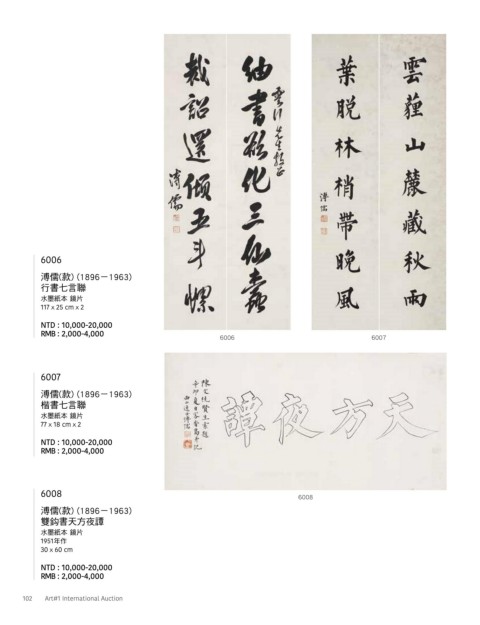 紬書欲化三仙蠹
雲行先生教正
裁詔還傾五斗螺
溥儒
雲薶山麓藏秋雨
葉脫林梢帶晚風
溥儒
6006
溥儒(款) (1896－1963)
行書七言聯
水墨紙本 鏡片
117 x 25 cm x 2
NTD : 10,000-20,000
RMB : 2,000-4,000
6006
6007
6007
溥儒(款) (1896－1963)
楷書七言聯
水墨紙本 鏡片
77 x 18 cm x 2
NTD : 10,000-20,000
RMB : 2,000-4,000
天方夜譚
6008
6008
溥儒(款) (1896－1963)
雙鈎書天方夜譚
水墨紙本 鏡片
1951年作
30 x 60 cm
NTD : 10,000-20,000
RMB : 2,000-4,000
102 Art#1 International Auction